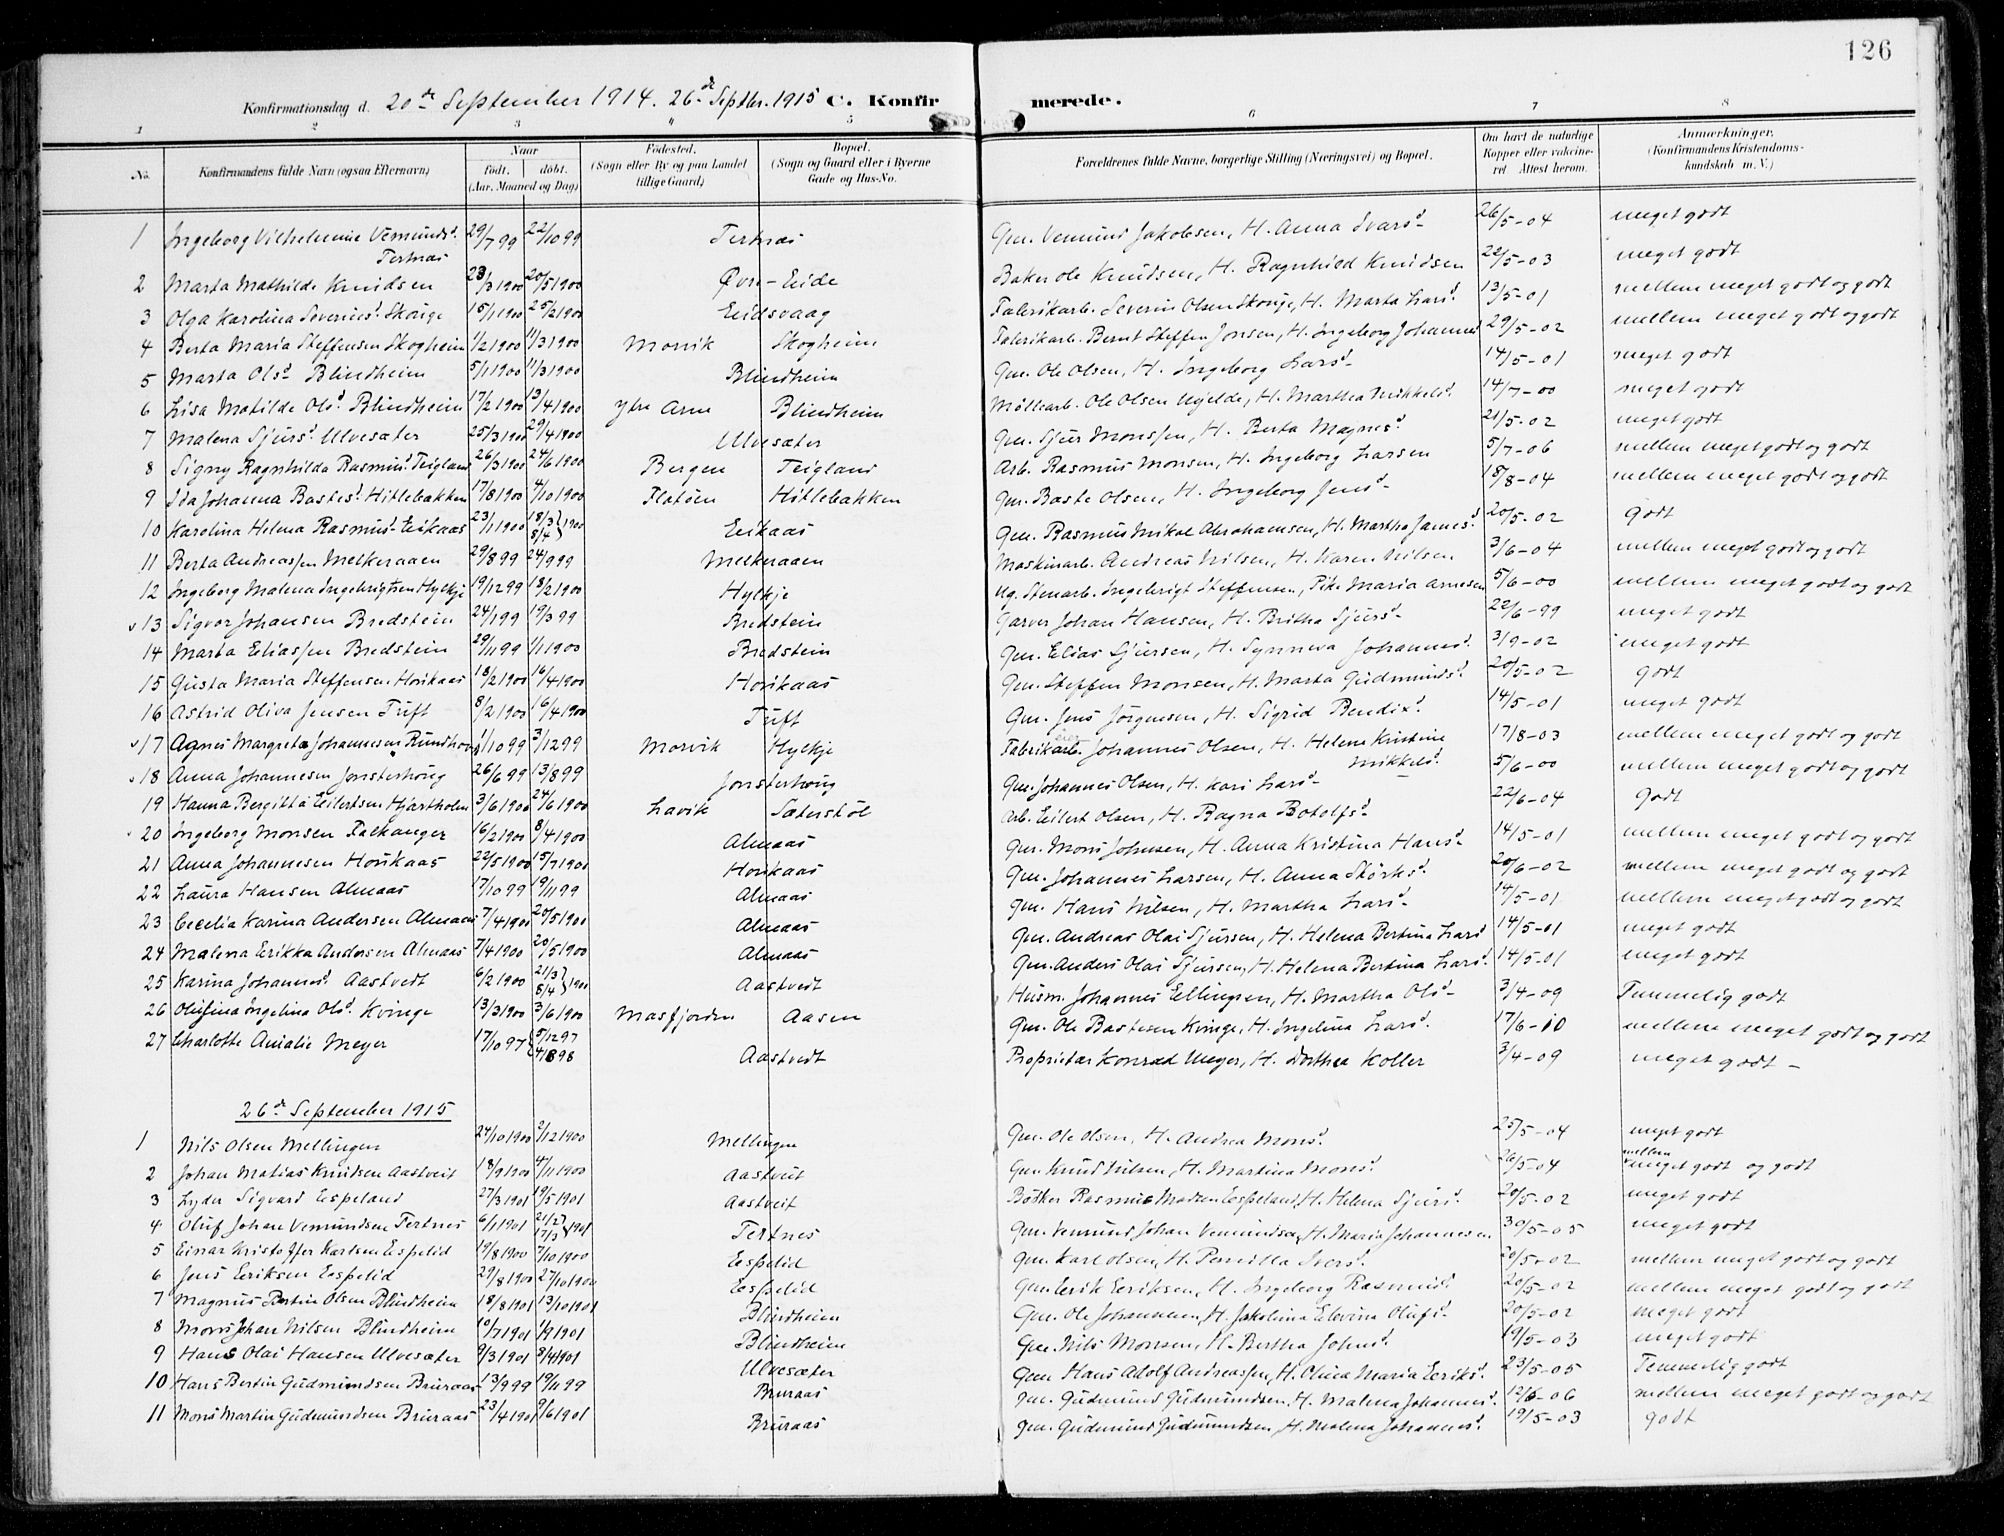 126
Konfirmationsdag d. 20de September 1914. 26de Septbr. 1915 C. Konfirmerede.
1 2 3 4 5 6 7 8
No. Konfirmandens fulde Navn (ogsaa Efternavn) Naar født. døbt. (Aar, Maaned og Dag) Fødested. (Sogn eller By og paa Landet tillige Gaard) Bopæl. (Sogn og Gaard eller i Byerne Gade og Hus-No. Forældrenes fulde Navne, borgerlige Stilling (Næringsvei) og Bopæl. Om havt de naturlige Kopper eller vakcineret. Attest herom. Anmærkninger. (Konfirmandens Kristendomskundskab m. V.)
1 Ingeborg Vilhelmine Vemundsd. Tertnæs 29/7 99 22/10 99 Tertnæs Gm. Vemund Jakobsen, H. Anna Ivarsd 26/5-04 meget godt
2 Marta Mathilde Knudsen 23/3 1900 20/5 1900 Øvre-Eide Baker Ole Knudsen, H. Ragnhild Knudsen 22/5-03 meget godt
3 Olga Karolina Severinsd. Skauge 15/1 1900 25/2 1900 Eidsvaag Fabrikarb. Severin Olsen Skouge, H. Marta Larsd. 13/5-01 mellem meget godt og godt
4 Berta Maria Steffensen Skogheim 1/2 1900 11/3 1900 Morvik Skogheim Fabrikarb. Bernt Steffen Jonsen, H. Ingeborg Johannesd 29/5-02 mellem meget godt og godt
5 Marta Olsd Blindheim 5/1 1900 11/3 1900 Blindheim Gm. Ole Olsen, H. Ingeborg Larsd. 14/5-01 meget godt
6 Lisa Matilde Olsd. Blindheim 17/2 1900 13/4 1900 Ytre Arne Blindheim Møllearb. Ole Olsen Hjelde, H. Martha Mikkelsd. 14/7-00 meget godt
7 Malena Sjursd. Ulvesæter 25/3 1900 29/4 1900 Ulvesæter Gm. Sjur Monssen, H. Berta Magnesd. 21/5-02 meget godt
8 Signy Ragnhilda Rasmusd Teigland 26/3 1900 24/6 1900 Bergen Teigland Arb. Rasmus Monsen, H. Ingeborg Larsen 5/7-06 mellem meget godt og godt
9 Ida Johanna Bastesd. Hitlebakken 17/8 1900 4/10 1900 Flatøen Hitlebakken Gm. Baste Olsen, H. Ingeborg Jensd 18/8-04 mellem meget godt og godt
10 Karolina Helena Rasmusd Eikaas 23/1 1900 18/3 8/4 } 1900 Eikaas Gm. Rasmus Mikal Abrahamsen, H. Martha Jansd. 20/5-02 Godt
11 Berta Andreassen Melkeraaen 29/8 99 24/9 99 Melkeraaen Maskinarb. Andreas Nilsen, H. Karen Nilsen 3/6-04 mellem meget godt og godt
12 Ingeborg Malena Ingebrigtsen Hylkje 19/12 99 18/2 1900 Hylkje Ug. Stenarb. Ingebrigt Steffensen, Pike Maria Arnesen 5/6-00 mellem meget godt og godt
v 13 Sigvor Johansen Bredstein 24/1 99 19/3 99 Bredstein Garver Johan Hansen, H. Britha Sjursd 22/6-99 meget godt
14 Marta Eliassen Bredstein 29/11 99 1/1 1900 Bredstein Gm. Elias Sjursen, H. Synneva Johannesd. 3/9-02 meget godt
15 Gusta Maria Steffensen Horikaas 18/2 1900 16/4 1900 Horikaas Gm. Steffen Monsen, H. Marta Gudmundsd. 20/5-02 godt
16 Astrid Oliva Jensen Tuft 8/2 1900 16/4 1900 Tuft Gm. Jens Jørgensen, H. Sigrid Bendixd. 14/5-01 meget godt
v 17 Agnes Margreta Johannessen Rundhovd 1/10 99 3/12 99 Morvik Hylkje Fabrikarb. Johannes Olsen, H. Helena Kristine Mikkelsd. 17/8-03 mellem meget godt og godt
v 18 Anna Johannesen Jonsterhoug 26/6 99 13/8 99 Jonsterhoug Gm. Johannes Olsen, H. Kari Larsd 5/6-00 mellem meget godt og godt
19 Hanna Bergitta Eilertsen Hjartholm 3/6 1900 24/6 1900 Lavik Sæterstøl Arb. Eilert Olsen, H. Ragna Botolfsd. 22/6-04 Godt
20 Ingeborg Monsen Falkanger 16/2 1900 8/4 1900 Almaas Gm. Mons Johnsen, H. Anna Kristina Hansd 14/5-01 mellem meget godt og godt
21 Anna Johannesen Horikaas 22/5 1900 15/7 1900 Horikaas Gm. Johannes Larsen, H. Anna Størksd. 20/6-02 mellem meget godt og godt
22 Laura Hansen Almaas 17/10 99 19/11 99 Almaas Gm. Hans Nilsen, H. Martha Larsd 14/5-01 mellem meget godt og godt
23 Cecelia Karina Andersen Almaas 7/4 1900 20/5 1900 Almaas Gm. Andreas Olai Sjursen, H. Helena Bertina Larsd 14/5-01 meget godt
24 Malena Erikka Andersen Almaas 7/4 1900 20/5 1900 Almaas Gm. Anders Olai Sjursen, H. Helena Bertina Larsd. 14/5-01 meget godt
25 Karina Johannesd. Aastvedt 6/2 1900 21/3 8/4 } 1900 Aastvedt Husm. Johannes Ellingsen, H. Martha Olsd 3/4-09 Temmelig godt
26 Olufina Ingelina Olsd. Kvinge 13/3 1900 3/6 1900 Masfjorden Aasen Gm. Ole Bastesen Kvinge, H. Ingelina Larsd. 17/6-10 mellem meget godt og godt
27 Charlotte Amalie Meyer 17/10 97 { 5/12 97 4/1 898 Aastvedt Proprietær Konrad Meyer, H. Dorthea Koller 3/4-09 meget godt
26de September 1915
1 Nils Olsen Mellingen 24/10 1900 2/12 1900 Mellingen Gm. Ole Olsen, H. Andrea Monsd. 25/5-04 meget godt
2 Johan Matias Knudsen Aastveit 18/9 1900 4/11 1900 Aastveit Gm. Knud Nilsen, H. Martina Monsd. 26/5-04 mellem meget godt og godt
3 Lyder Sigvard Espeland 27/3 1901 19/5 1901 Aastveit Bødker Rasmus Madsen Espeland, H. Helena Sjursd. 20/5-02 meget godt
4 Oluf Johan Vemundsen Tertnes 6/1 1901 21/2 17/3 } 1901 Tertnes Gm. Vemund Johan Vemundsen, H. Maria Johannesen 30/5-05 meget godt
5 Einar Kristoffer Karlsen Espelid 19/8 1900 7/10 1900 Espelid Gm. Karl Olsen, H. Pernilla Iversd. 20/5-02 mellem meget godt og godt
6 Jens Eriksen Espelid 29/8 1900 27/10 1900 Espelid Gm. Erik Eriksen, H. Ingeborg Rasmusd. 20/5-02 mellem meget godt og godt
7 Magnus Bertin Olsen Blindheim 18/8 1901 13/10 1901 Blindheim Gm. Ole Johannesen, H. Jakobina Elevina Olufsd. 20/5-02 meget godt
8 Mons Johan Nilsen Blindheim 10/7 1901 1/9 1901 Blindheim Gm. Nils Monsen, H. Bertha Johnsd. 19/5-03 meget godt
9 Hans Olai Hansen Ulvesæter 9/3 1901 8/4 1901 Ulvesæter Gm Hans Adolf Andreassen, H. Olina Maria Eriksd. 23/5-05 Temmelig godt
10 Hans Bertin Gudmundsen Bruraas 13/9 99 19/11 99 Bruraas Gm. Gudmund Gudmundsen, H. Malena Johannesd. 12/6-06 mellem meget godt og godt
11 Mons Martin Gudmundsen Bruraas 23/4 1901 9/6 1901 Bruraas Gm. Gudmund Gudmundsen, H. Malena Johannesd. 19/5-03 godt